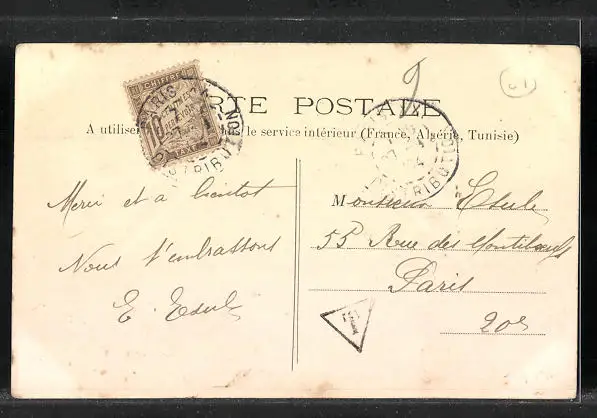 CARTE POSTALE
A utiliser seulement dans le service intérieur (France, Algérie, Tunisie)
CHIFFRE
10
TAXE
PARIS
DISTRIBUTION
DISTRIBUTION
61
Merci et a bientot
Nous t'embrassons
E.
Monsieur
55 Rue des Montiboeufs
Paris
20e